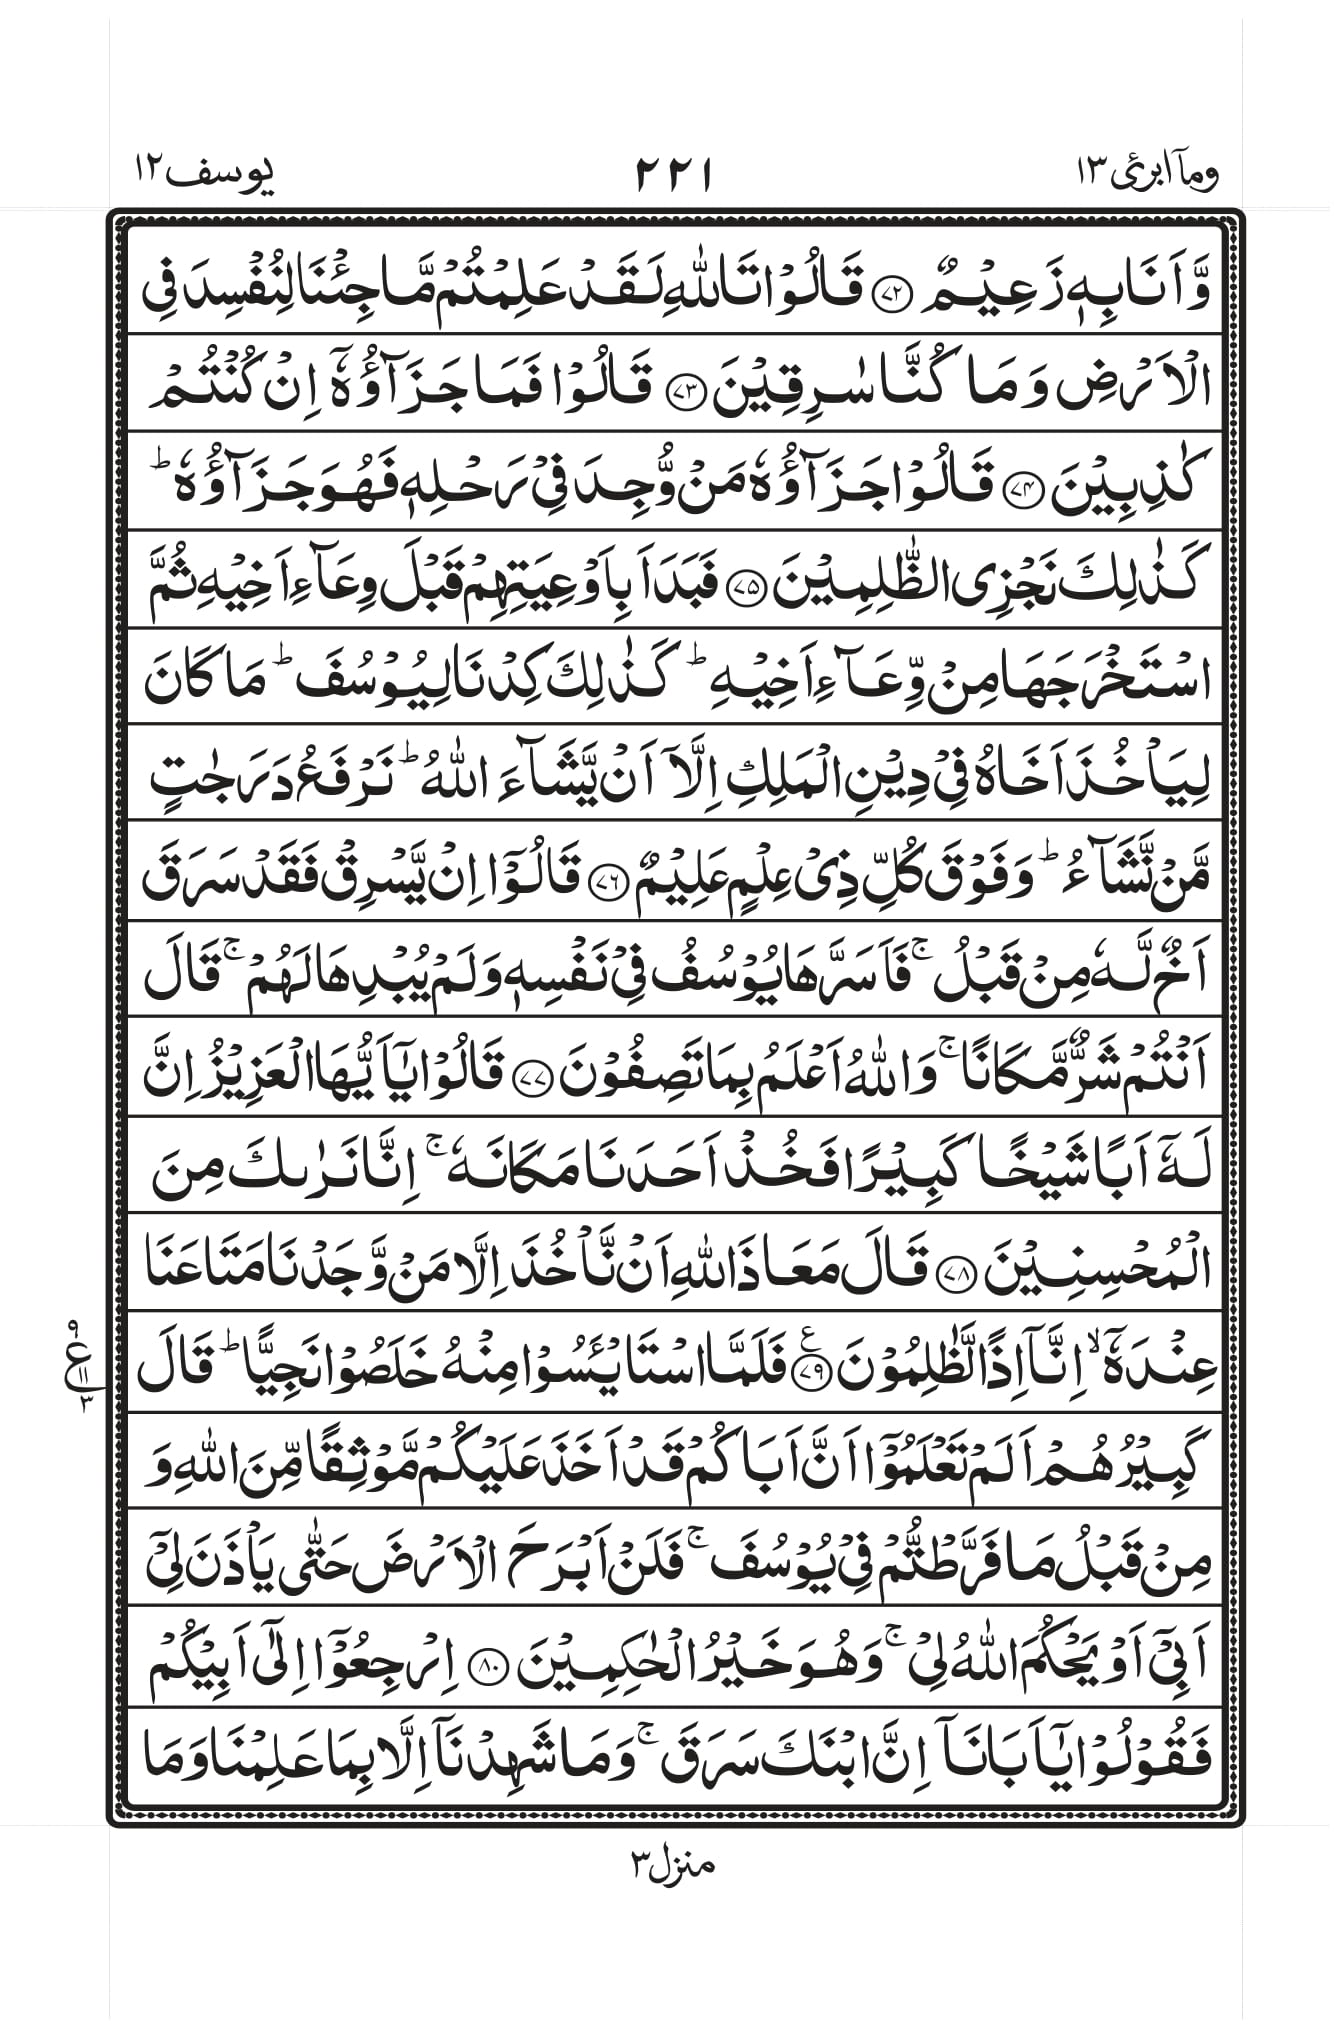 وماۤ ابرئ ١٣
٢٢١
يوسف ١٢
وَّاَنَا بِهٖ زَعِيْمٌ ﴿۷۲﴾ قَالُوْا تَاللّٰهِ لَقَدْ عَلِمْتُمْ مَّا جِئْنَا لِنُفْسِدَ فِي
الْاَرْضِ وَمَا كُنَّا سٰرِقِيْنَ ﴿۷۳﴾ قَالُوْا فَمَا جَزَآؤُهٗۤ اِنْ كُنْتُمْ
كٰذِبِيْنَ ﴿۷۴﴾ قَالُوْا جَزَآؤُهٗ مَنْ وُّجِدَ فِيْ رَحْلِهٖ فَهُوَ جَزَآؤُهٗ ؕ
كَذٰلِكَ نَجْزِي الظّٰلِمِيْنَ ﴿۷۵﴾ فَبَدَاَ بِاَوْعِيَتِهِمْ قَبْلَ وِعَآءِ اَخِيْهِ ثُمَّ
اسْتَخْرَجَهَا مِنْ وِّعَآءِ اَخِيْهِ ؕ كَذٰلِكَ كِدْنَا لِيُوْسُفَ ؕ مَا كَانَ
لِيَاْخُذَ اَخَاهُ فِيْ دِيْنِ الْمَلِكِ اِلَّاۤ اَنْ يَّشَآءَ اللّٰهُ ؕ نَرْفَعُ دَرَجٰتٍ
مَّنْ نَّشَآءُ ؕ وَفَوْقَ كُلِّ ذِيْ عِلْمٍ عَلِيْمٌ ﴿۷۶﴾ قَالُوْۤا اِنْ يَّسْرِقْ فَقَدْ سَرَقَ
اَخٌ لَّهٗ مِنْ قَبْلُ ۚ فَاَسَرَّهَا يُوْسُفُ فِيْ نَفْسِهٖ وَلَمْ يُبْدِهَا لَهُمْ ۚ قَالَ
اَنْتُمْ شَرٌّ مَّكَانًا ۚ وَاللّٰهُ اَعْلَمُ بِمَا تَصِفُوْنَ ﴿۷۷﴾ قَالُوْا يٰۤاَيُّهَا الْعَزِيْزُ اِنَّ
لَهٗۤ اَبًا شَيْخًا كَبِيْرًا فَخُذْ اَحَدَنَا مَكَانَهٗ ۚ اِنَّا نَرٰىكَ مِنَ
الْمُحْسِنِيْنَ ﴿۷۸﴾ قَالَ مَعَاذَ اللّٰهِ اَنْ نَّاْخُذَ اِلَّا مَنْ وَّجَدْنَا مَتَاعَنَا
عِنْدَهٗۤ ۙ اِنَّاۤ اِذًا لَّظٰلِمُوْنَ ﴿۷۹﴾ ع فَلَمَّا اسْتَايْـَٔسُوْا مِنْهُ خَلَصُوْا نَجِيًّا ؕ قَالَ
كَبِيْرُهُمْ اَلَمْ تَعْلَمُوْۤا اَنَّ اَبَاكُمْ قَدْ اَخَذَ عَلَيْكُمْ مَّوْثِقًا مِّنَ اللّٰهِ وَ
مِنْ قَبْلُ مَا فَرَّطْتُّمْ فِيْ يُوْسُفَ ۚ فَلَنْ اَبْرَحَ الْاَرْضَ حَتّٰى يَاْذَنَ لِيْۤ
اَبِيْۤ اَوْ يَحْكُمَ اللّٰهُ لِيْ ۚ وَهُوَ خَيْرُ الْحٰكِمِيْنَ ﴿۸۰﴾ اِرْجِعُوْۤا اِلٰۤى اَبِيْكُمْ
فَقُوْلُوْا يٰۤاَبَانَاۤ اِنَّ ابْنَكَ سَرَقَ ۚ وَمَا شَهِدْنَاۤ اِلَّا بِمَا عَلِمْنَا وَمَا
٩
ع
١١
٣
منزل ٣